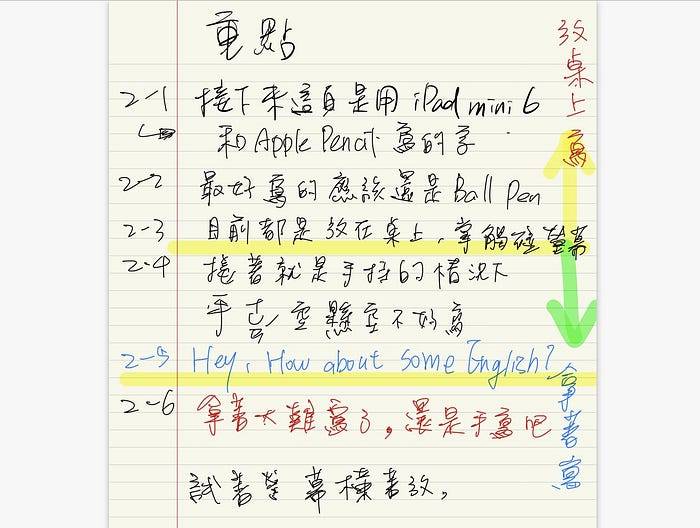 重點
放桌上寫
2-1 接下來這頁是用 iPad mini 6
和 Apple Pencil 寫的字
2-2 最好寫的應該還是 Ball Pen
2-3 目前都是放在桌上,掌觸碰螢幕
2-4 接著就是手持的情況下
手去空懸空不好寫
2-5 Hey, How about some English?
拿著寫
2-6 拿著太難寫了,還是手寫吧
試著螢幕橫著放,